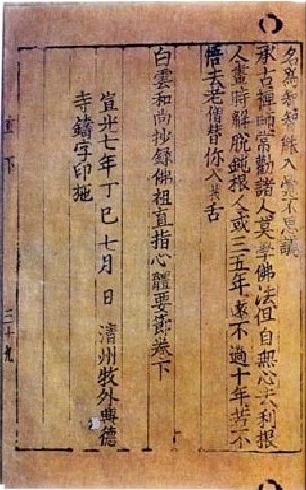 名爲神智能入覺不思議
承古禪師常勸諸人莫學佛法但自無心去利根
人晝時解脫鈍根人或三五年遠不過十年若不
悟去老僧替你入舌
白雲和尚抄錄佛祖直指心體要節卷下
宣光七年丁巳七月 日 清州牧外興德
寺鑄字印施
直下
三十九